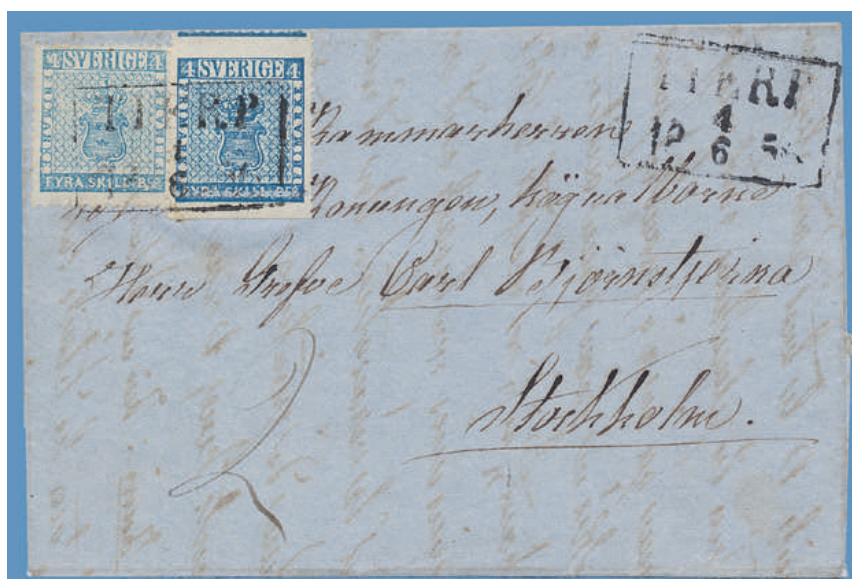 4 SVERIGE 4
FYRA SKILL. BCO
4 SVERIGE 4
FYRA SKILL. BCO
TIERP
6
TIERP
4
12 6 56
Kammarherren
Konungen, högvälborne
Herr Grefve Carl Björnstjerna
Stockholm.
2